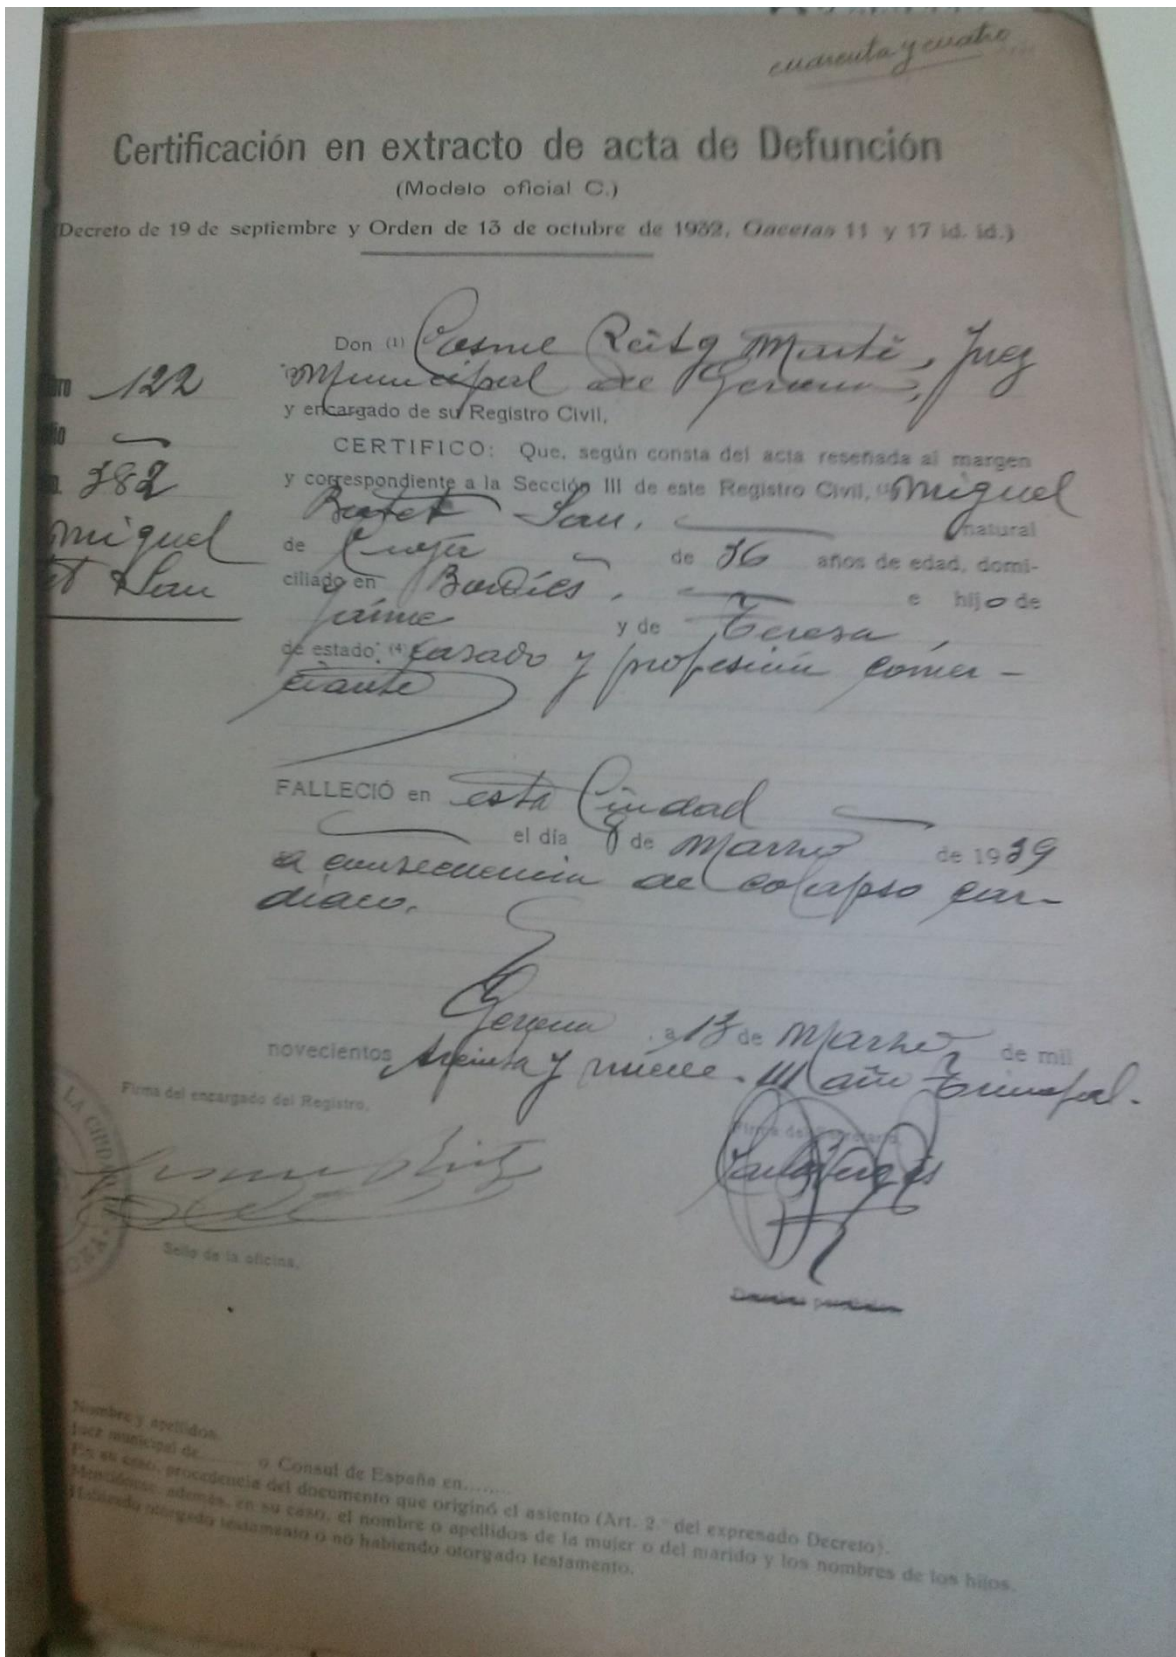 cuarenta y cuatro
Certificación en extracto de acta de Defunción
(Modelo oficial C.)
Decreto de 19 de septiembre y Orden de 13 de octubre de 1932, Gacetas 11 y 17 id. id.)
Don (1) Cosme Reitg Martí, Juez
Municipal de Gerona,
y encargado de su Registro Civil,
122
CERTIFICO: Que, según consta del acta reseñada al margen
382
y correspondiente a la Sección III de este Registro Civil, Miguel
Sau, natural
Miguel
Sau
de de 36 años de edad, domi-
ciliado en Bordils, e hijo de
Jaime y de Teresa,
de estado: (4) casado y profesión comer-
ciante
FALLECIÓ en esta Ciudad
el día 8 de Marzo de 1939
a consecuencia de colapso car-
diaco.
Gerona, a 13 de Marzo de mil
novecientos treinta y nueve. III año Triunfal.
Firma del encargado del Registro,
Firma del Secretario,
Sello de la oficina,
Nombre y apellidos.
Juez municipal de........ o Consul de España en........
En su caso, procedencia del documento que originó el asiento (Art. 2.º del expresado Decreto).
Menciónese además, en su caso, el nombre o apellidos de la mujer o del marido y los nombres de los hijos.
Habiendo otorgado testamento o no habiendo otorgado testamento.